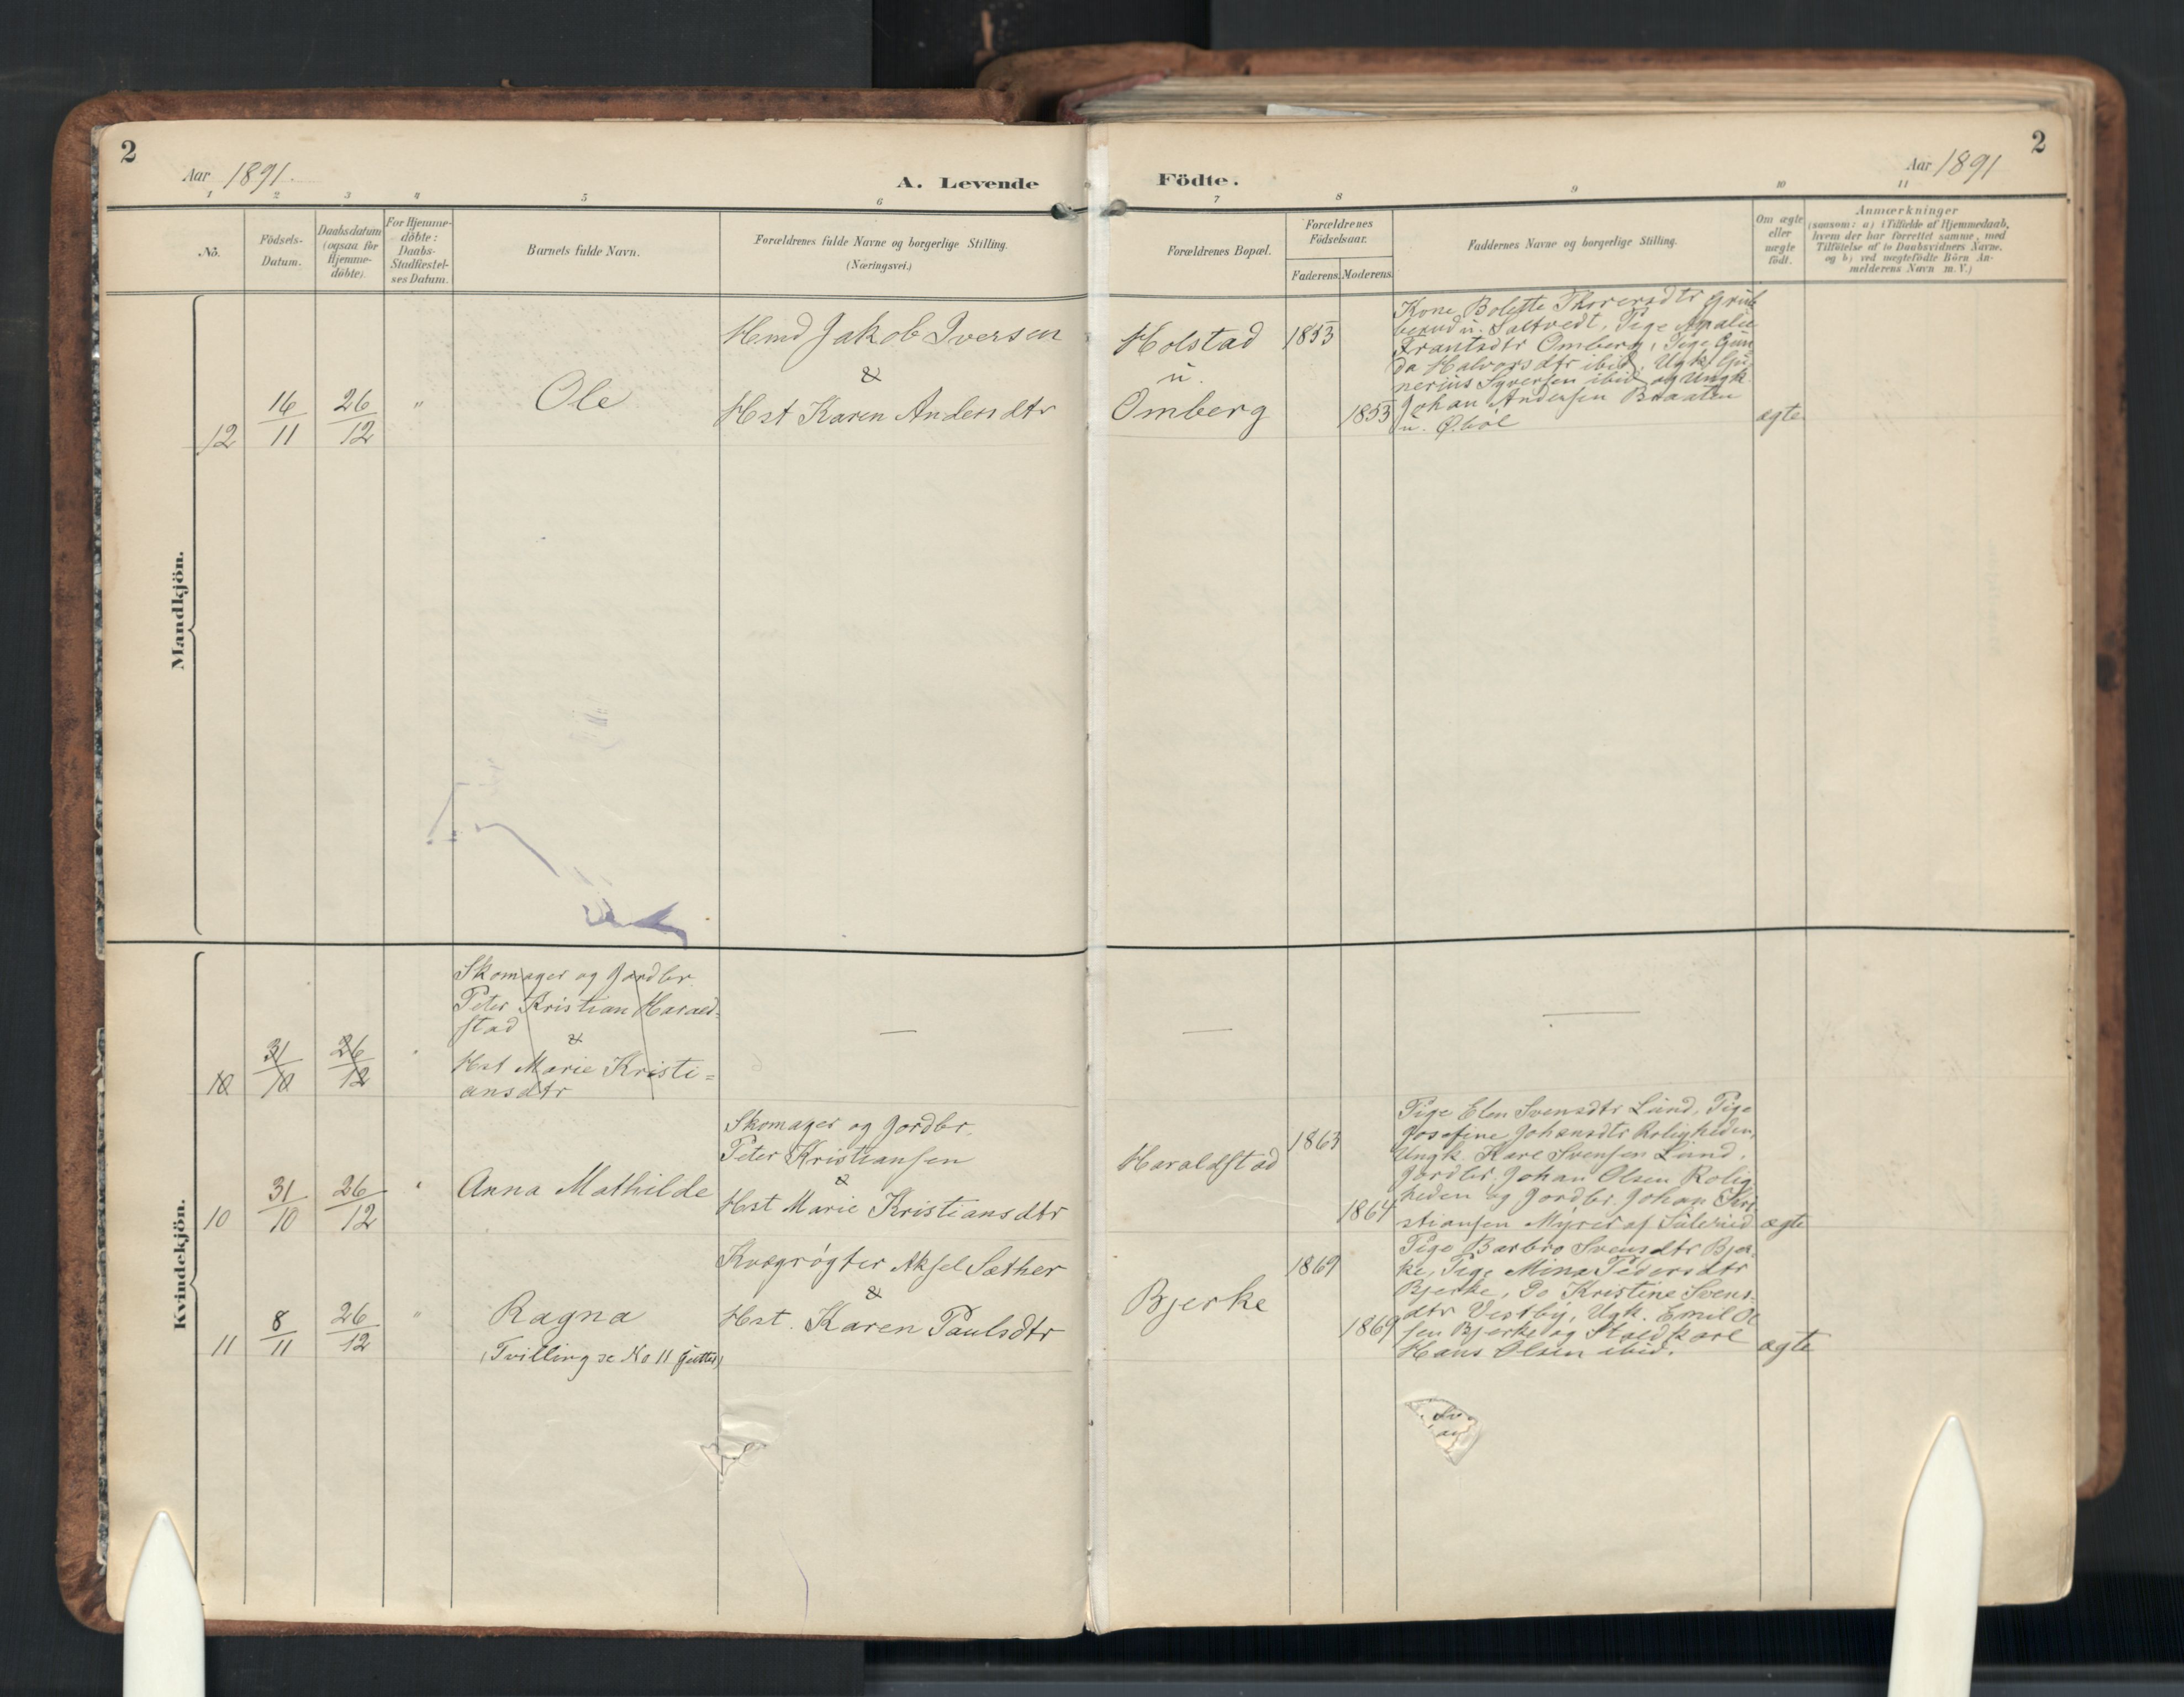 2
Aar 1891.
A. Levende
Födte.
Aar 1891
2
1 2 3 4 5 6 7 8 9 10 11
Nô.
Födsels-
Datum.
Daabsdatum
(ogsaa for
Hjemme-
döbte).
For Hjemme-
döbte:
Daabs-
Stadfæstel-
ses Datum.
Barnets fulde Navn.
Forældrenes fulde Navne og borgerlige Stilling.
(Næringsvei.)
Forældrenes Bopæl.
Forældrenes
Födselsaar.
Faderens. Moderens.
Faddernes Navne og borgerlige Stilling.
Om ægte
eller
uægte
födt.
Anmærkninger
(saasom: a) i Tilfælde af Hjemmedaab,
hvem der har forrettet samme, med
Tilföielse af to Daabsvidners Navne.
og b) ved uægtefödte Börn An-
melderens Navn m. V.)
Mandkjön.
12
16/11
26/12
"
Ole
Hmd Jakob Iversen
&
Hst Karen Andersdtr
Holstad
u.
Omberg
1853
1853
Kone Bolette Thorersdtr
u. Saltvedt, Pige Amalie
Frantsdtr Omberg, Pige Gun
da Halvorsdtr ibid, Ugk. Gu
nerius Syversen ibid og Ungk.
Johan Andersen Braaten
u. Øböl
ægte
Kvindekjön.
10
31/10
26/12
Skomager og Jordbr.
Peter Kristian Harald-
stad
&
Hst Marie Kristi=
ansdtr
—
—
—
10
31/10
26/12
"
Anna Mathilde
Skomager og Jordbr.
Peter Kristiansen
&
Hst Marie Kristiansdtr
Haraldstad
1863
1864
Pige Elen Svensdtr Lund, Pige
Josefine Johansdtr Roligheden,
Ungk. Karl Svensen Lund,
Jordbr. Johan Olsen Rolig
heden og Jordbr. Johan Kri
stiansen Myrer af
ægte
11
8/11
26/12
"
Ragna
(Tvilling se No 11 Gutter)
Kvægrøgter Aksel Sæther
&
Hst. Karen Paulsdtr
Bjerke
1869
1869
Pige Barbro Svensdtr Bjer
ke, Pige Mina Pedersdtr
Bjerke, Do Kristine Svens-
dtr Vestby, Ugk. Emil Ol
sen Bjerke og Staldkarl
Hans Olsen ibid.
ægte